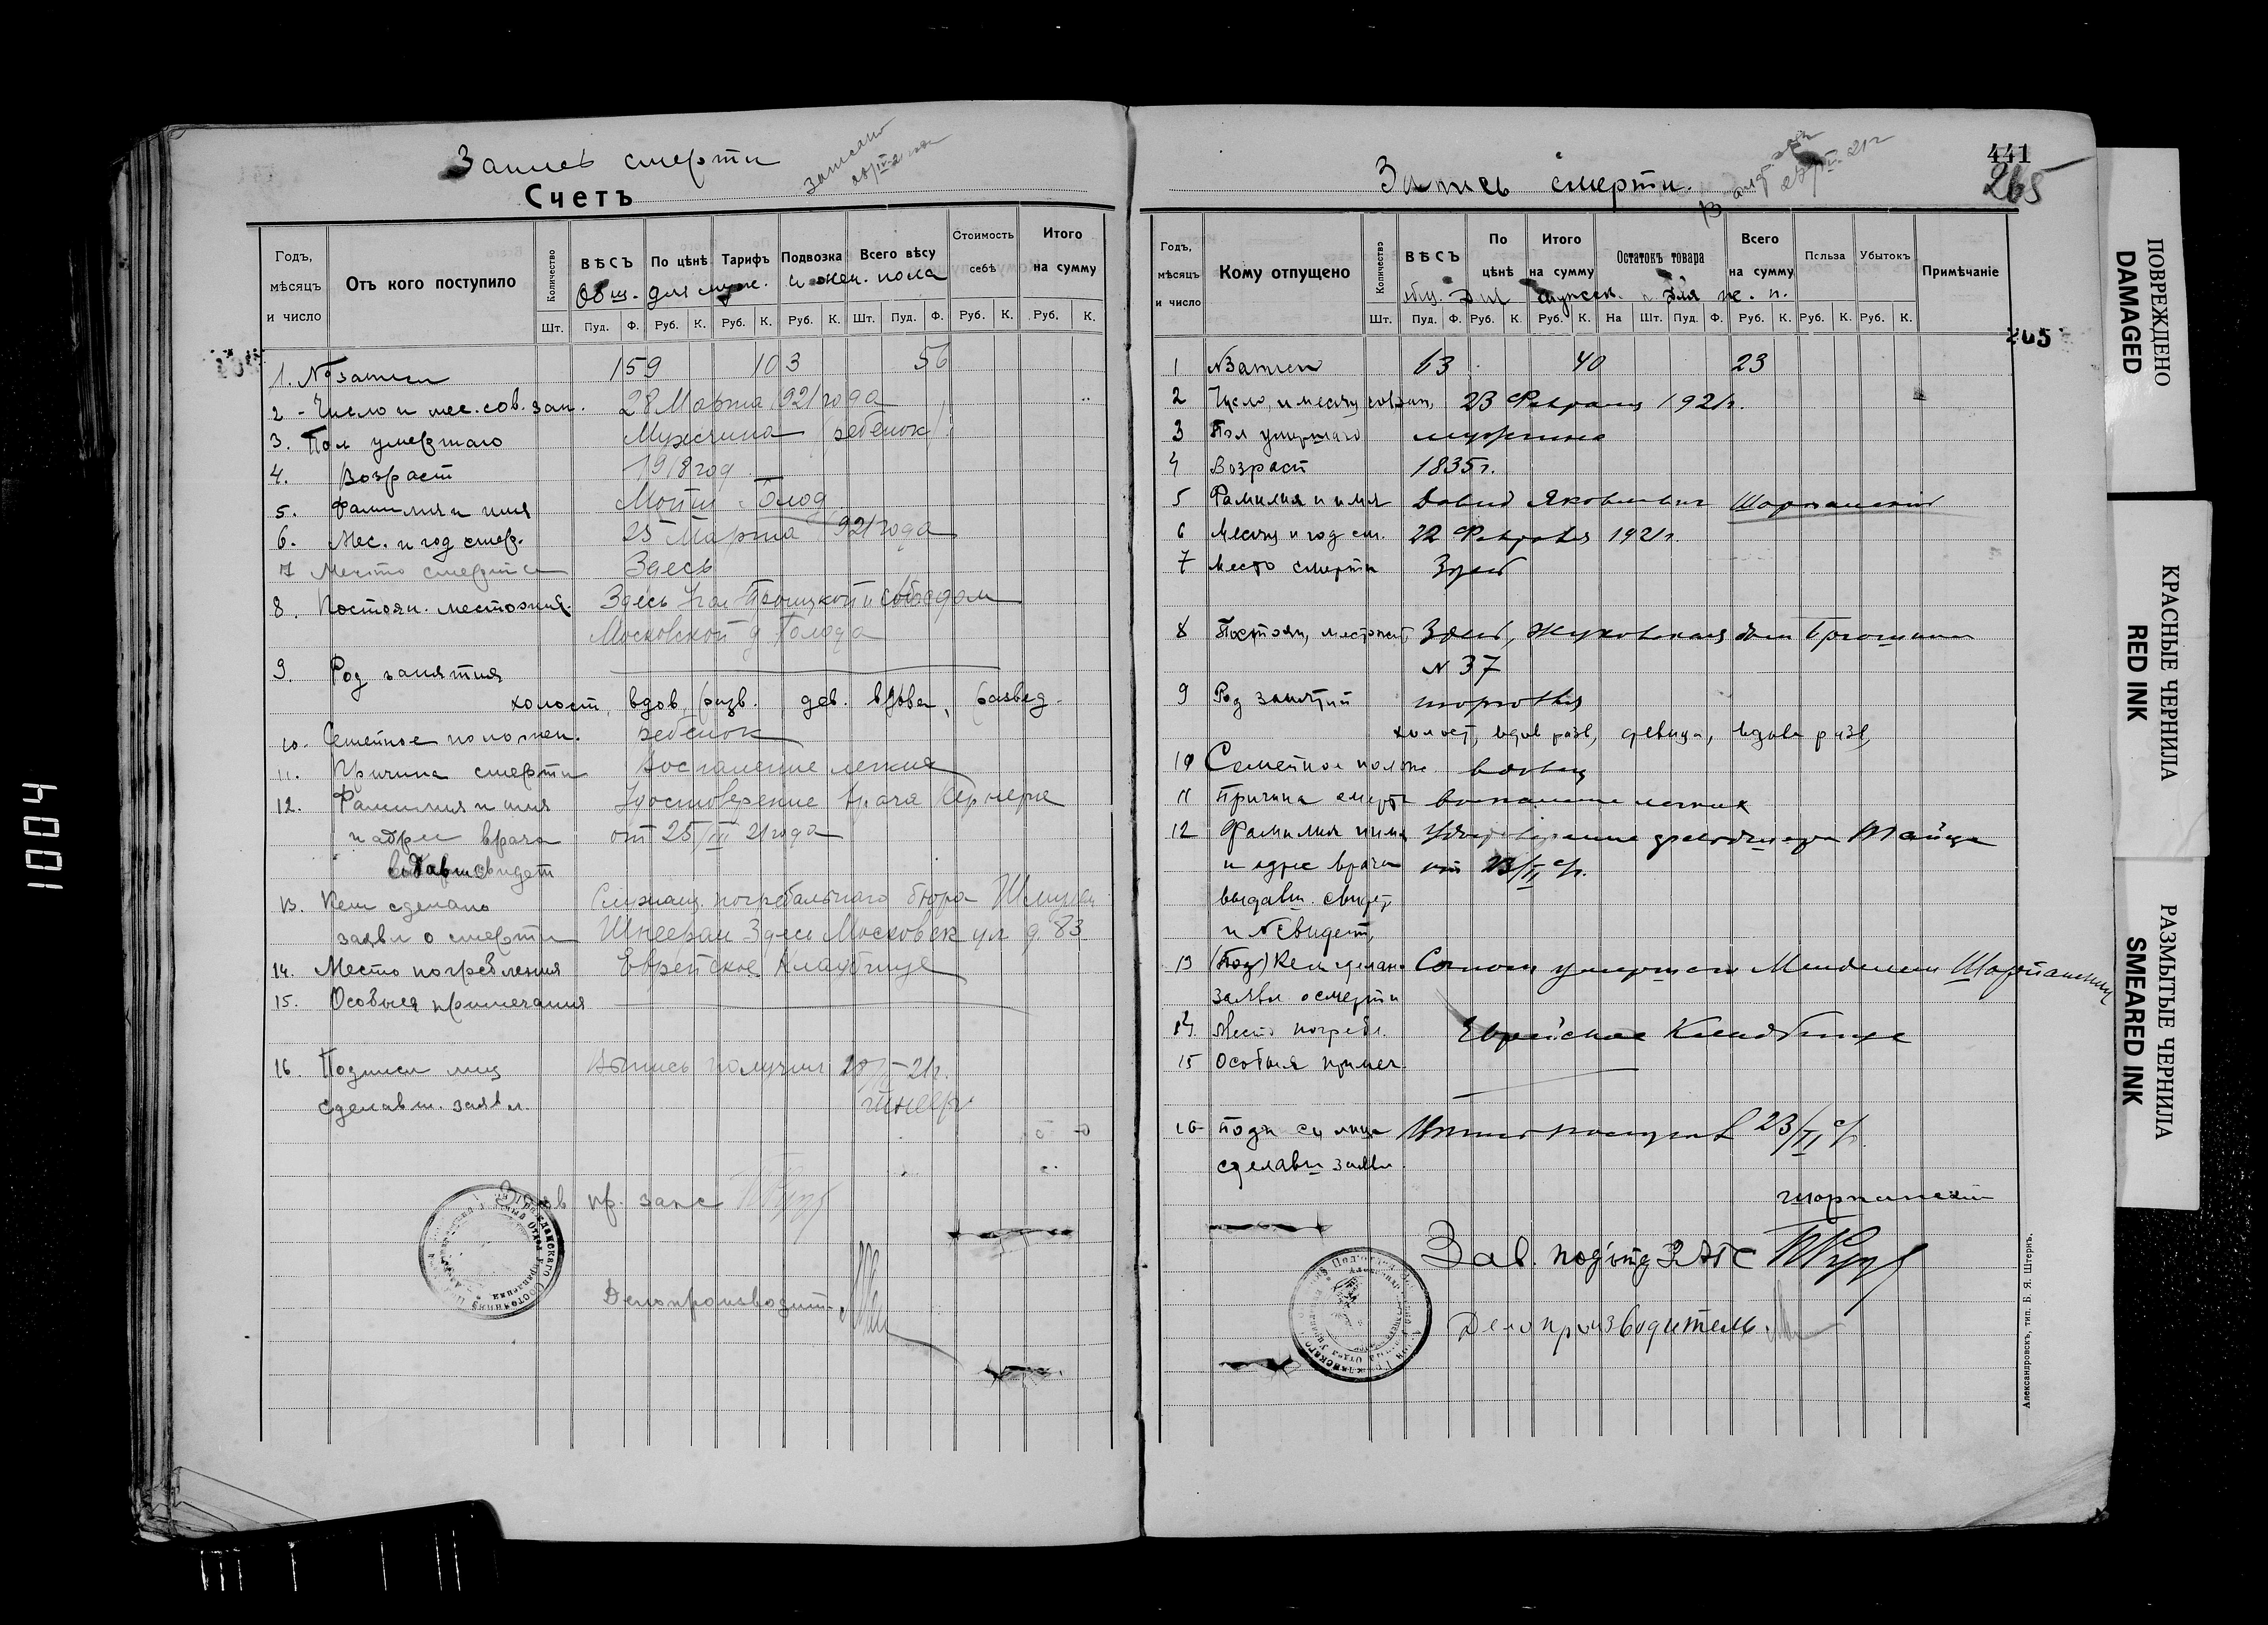 Запись смерти
Счетъ
Записано
Годъ, мѣсяцъ и число
Отъ кого поступило
Количество
Шт.
ВѢСЪ
Пуд. Ф.
По цѣнѣ
Руб. К.
Тарифъ
Руб. К.
Подвозка
Руб. К.
Всего вѣсу
Шт. Пуд. Ф.
Стоимость себѣ
Руб. К.
Итого на сумму
Руб. К.
Общ. для муж. и жен. пола
1. № записи 159 103 56
2 - Число и мес. сов. зап. 28 Марта 1921 года
3. Пол умершаго Мужчина (ребенок)
4. Возраст 1918 год
5. Фамилия и имя Голод
6. Мес. и год смер. 25 Марта 1921 года
7 Место смерти Здесь
8. Постоян. местожит. Здесь Троицкой и Соборной
Московской д. Голода
9. Род занятия
холост, вдов, разв. дев. вдова, развед.
10. Семейное положен. ребенок
11. Причина смерти Воспаление легких
12. Фамилия и имя Удостоверение врача
и адрес врача от 25/III 21 года
выдавш свидет
13. Кем сделано Служащ. погребального бюро
заявл о смерти Шнеерам Здесь Московск ул. д. 83
14. Место погребления Еврейское Кладбище
15. Особыя примечания
16. Подписи лиц Выпись получил 21 г.
сделавш. заявл. Шнеер
Зав пр. запс
Делопроизводит.
441
265
Запись смерти.
Годъ, мѣсяцъ и число
Кому отпущено
Количество
Шт.
ВѢСЪ
Пуд. Ф.
По цѣнѣ
Руб. К.
Итого на сумму
Руб. К.
Остатокъ товара
На Шт. Пуд. Ф.
Всего на сумму
Руб. К.
Польза
Руб. К.
Убытокъ
Руб. К.
Примѣчаніе
общ. для мужск. и для ж. п.
265
1 № Записи 63 40 23
2 Число, и месяц совзап, 23 Февраля 1921 г.
3 Пол умершаго мужчина
4 Возраст 1835 г.
5 Фамилия и имя Давид Яковлевич Шарпанский
6 Месяц и год см. 22 Февраля 1921 г.
7 Место смерти Здесь
8 Постоян, местожит, Здесь, Жуковская дом
№ 37
9 Род занятий торговля
холост, вдов разв, девица, вдова разв,
10 Семейное полож. вдовец
11 Причина смерти воспаление легких
12 Фамилия и имя Удостоверение
и адрес врача от 23/II с/г.
выдавш. свидет,
и № Свидет,
13 (Под) Кем сделано Сыном умершаго Менделем Шарпанским
заявл о смерти
14. Место погребл. Еврейское Кладбище
15 Особыя примеч.
16 подписи лица 23/II с/г.
сделавш заявл.
Шарпанский
Зав. под'отд ЗАГС
Делопроизводитель.
Александровскъ, тип. Б. Я. Штернъ.
ПОВРЕЖДЕНО
DAMAGED
КРАСНЫЕ ЧЕРНИЛА
RED INK
РАЗМЫТЫЕ ЧЕРНИЛА
SMEARED INK
1004